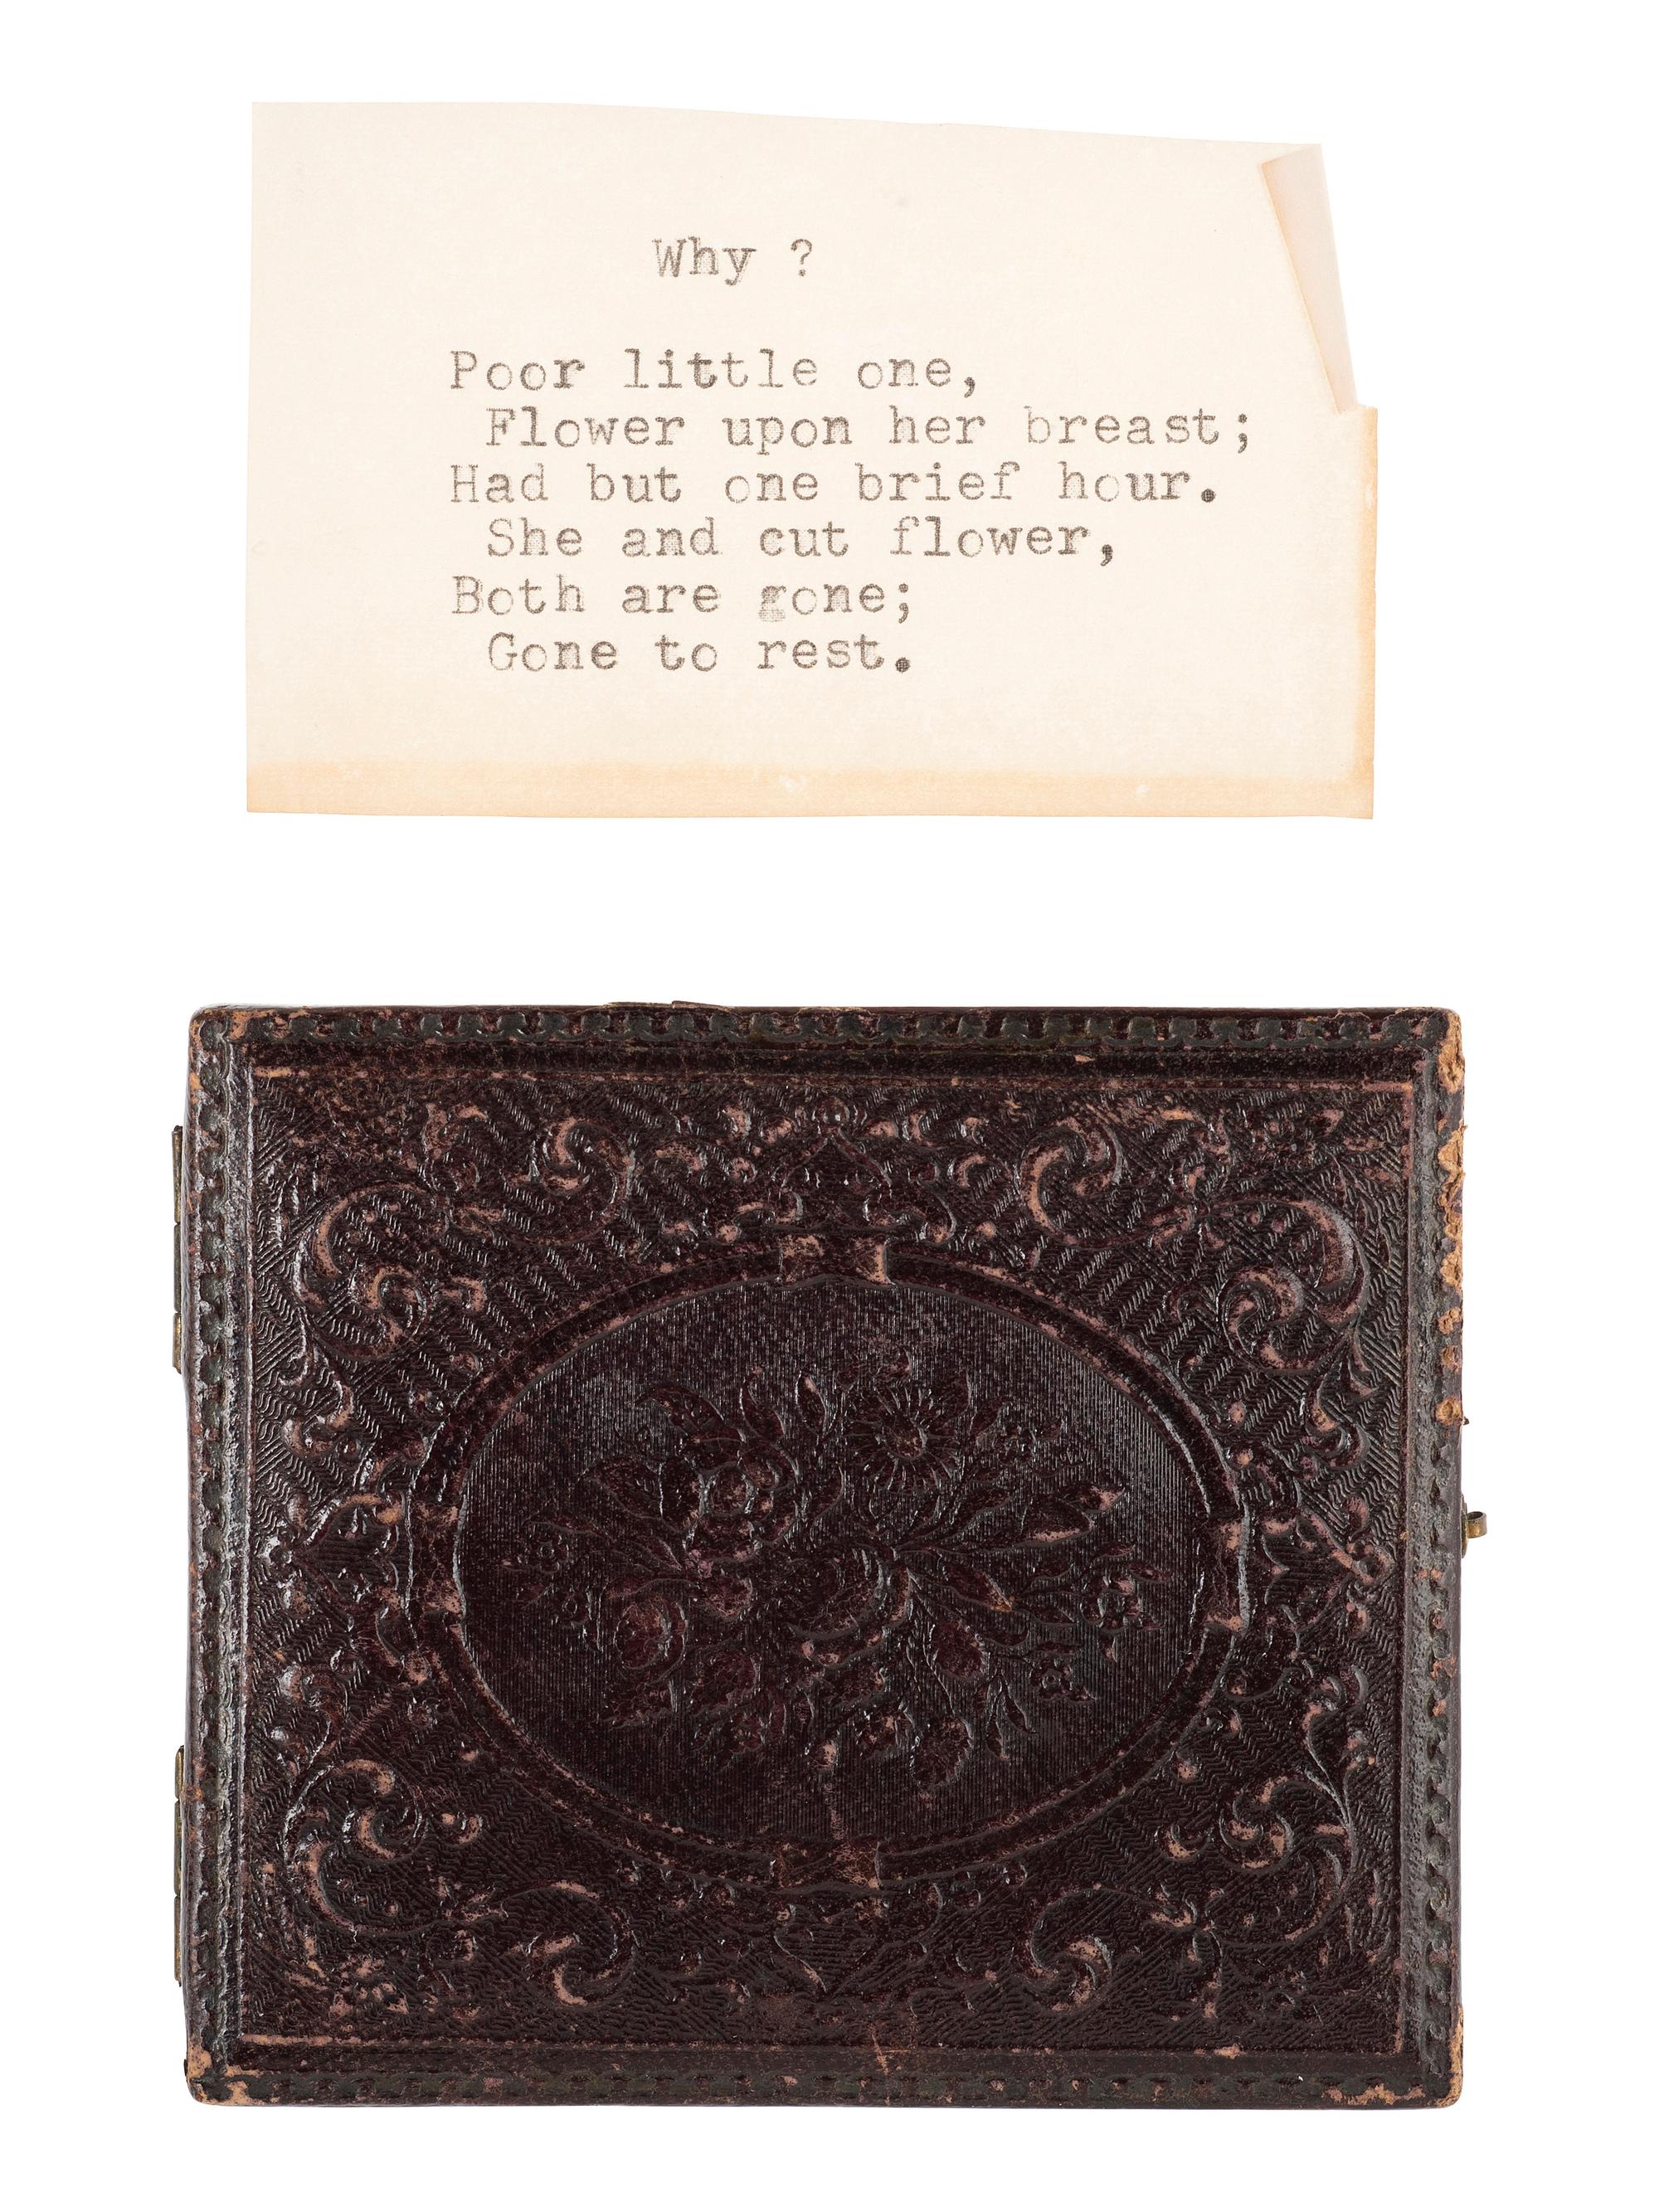 Why ?
Poor little one,
Flower upon her breast;
Had but one brief hour.
She and cut flower,
Both are gone;
Gone to rest.